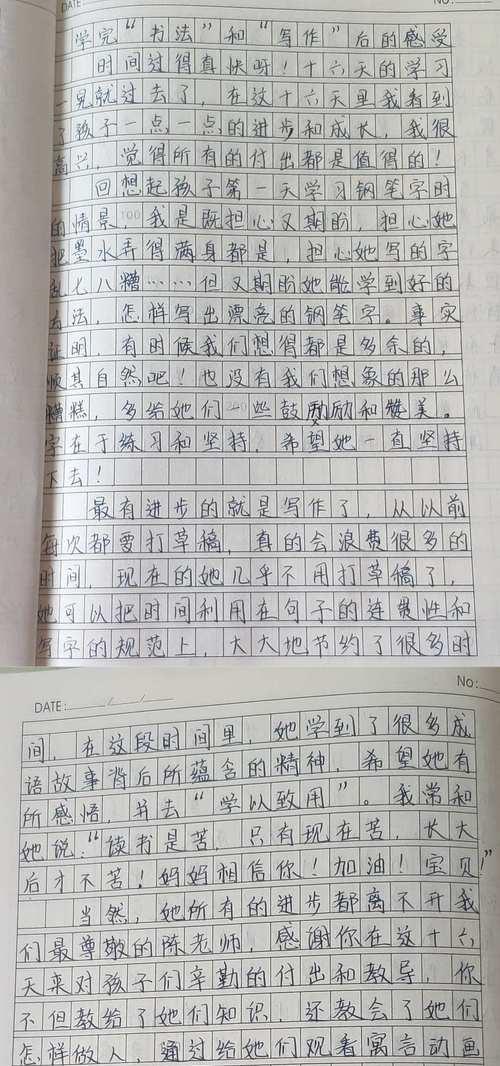 DATE
学完“书法”和“写作”后的感受
时间过得真快呀！十六天的学习
一晃就过去了，在这十六天里我看到
了孩子一点一点的进步和成长，我很
高兴，觉得所有的付出都是值得的！
回想起孩子第一天学习钢笔字时
的情景，我是既担心又期盼，担心她
把墨水弄得满身都是，担心她写的字
乱七八糟……但又期盼她能学到好的
方法，怎样写出漂亮的钢笔字。事实
证明，有时候我们想得都是多余的，
顺其自然吧！也没有我们想象的那么
糟糕，多给她们一些鼓励和赞美。
字在于练习和坚持，希望她一直坚持
下去！
最有进步的就是写作了，从以前
每次都要打草稿，真的会浪费很多的
时间，现在的她几乎不用打草稿了，
她可以把时间利用在句子的连贯性和
写字的规范上，大大地节约了很多时
DATE: No:
间，在这段时间里，她学到了很多成
语故事背后所蕴含的精神，希望她有
所感悟，并去“学以致用”。我常和
她说：“读书是苦，只有现在苦，长大
后才不苦！妈妈相信你！加油！宝贝！”
当然，她所有的进步都离不开我
们最尊敬的陈老师，感谢你在这十六
天来对孩子们辛勤的付出和教导，你
不但教给了她们知识，还教会了她们
怎样做人，通过给她们观看寓言动画